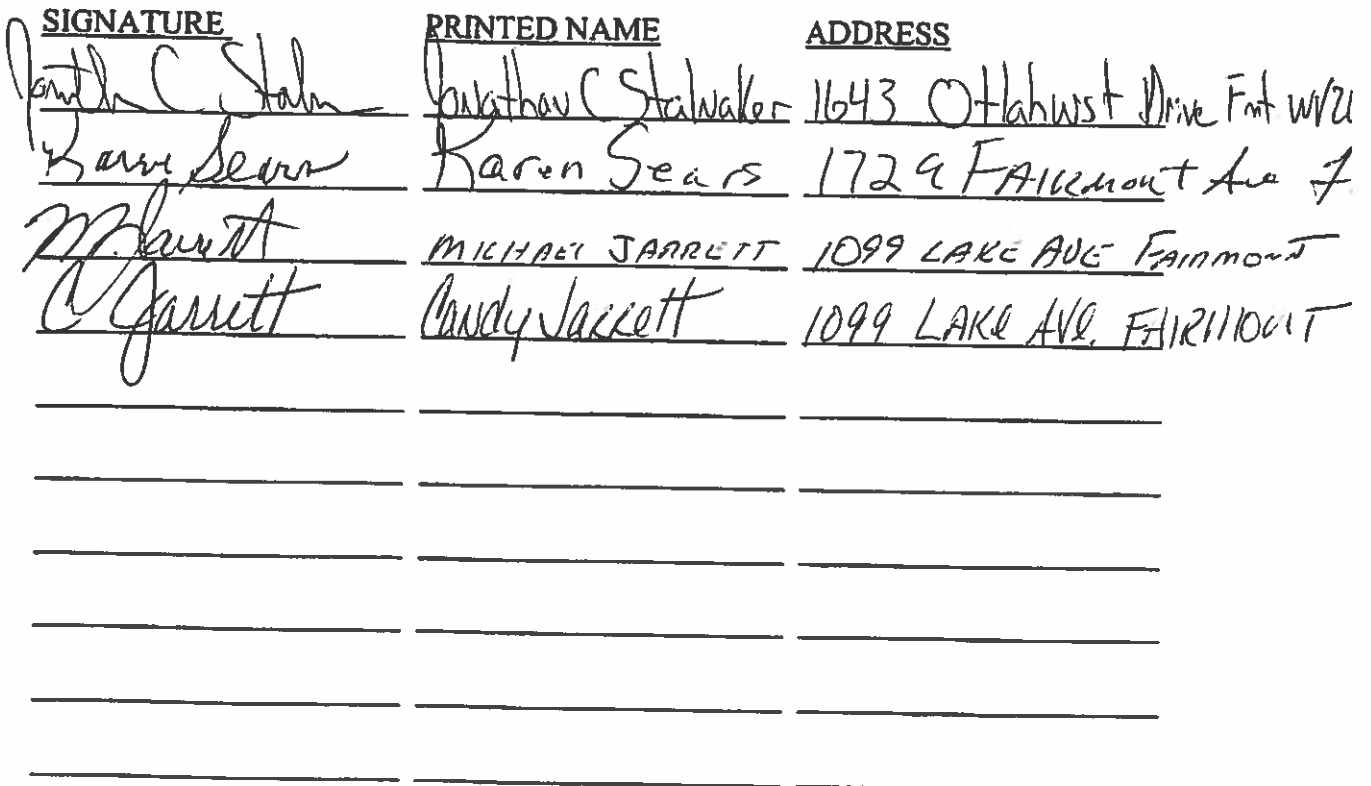 SIGNATURE PRINTED NAME ADDRESS
Jonathan C Stalnaker 1643 Drive Fmt WV
Karen Sears Karen Sears 1729 FAIRmont Ave F
M Jarrett MICHAEL JARRETT 1099 LAKE AVE FAIRMONT
C Jarrett Candy Jarrett 1099 LAKE AVE. FAIRMONT